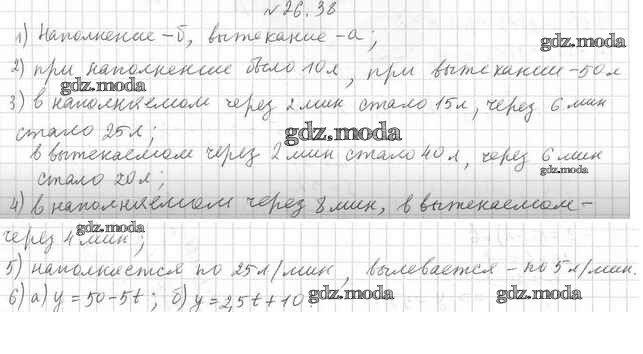 №26.38
1) Наполнение - б, вытекание - а;
gdz.moda
2) при наполнение было 10л, при вытекании - 50л
gdz.moda
3) в наполняемом через 2 мин стало 15л, через 6 мин
стало 25л;
gdz.moda
в вытекаемом через 2 мин стало 40л, через 6 мин
стало 20л;
gdz.moda
4) в наполняемом через 8 мин, в вытекаемом -
через 4 мин;
gdz.moda
5) наполняется по 25л/мин, вылевается - по 5л/мин.
6) а) y = 50 - 5t; б) y = 2,5t + 10.
gdz.moda gdz.moda